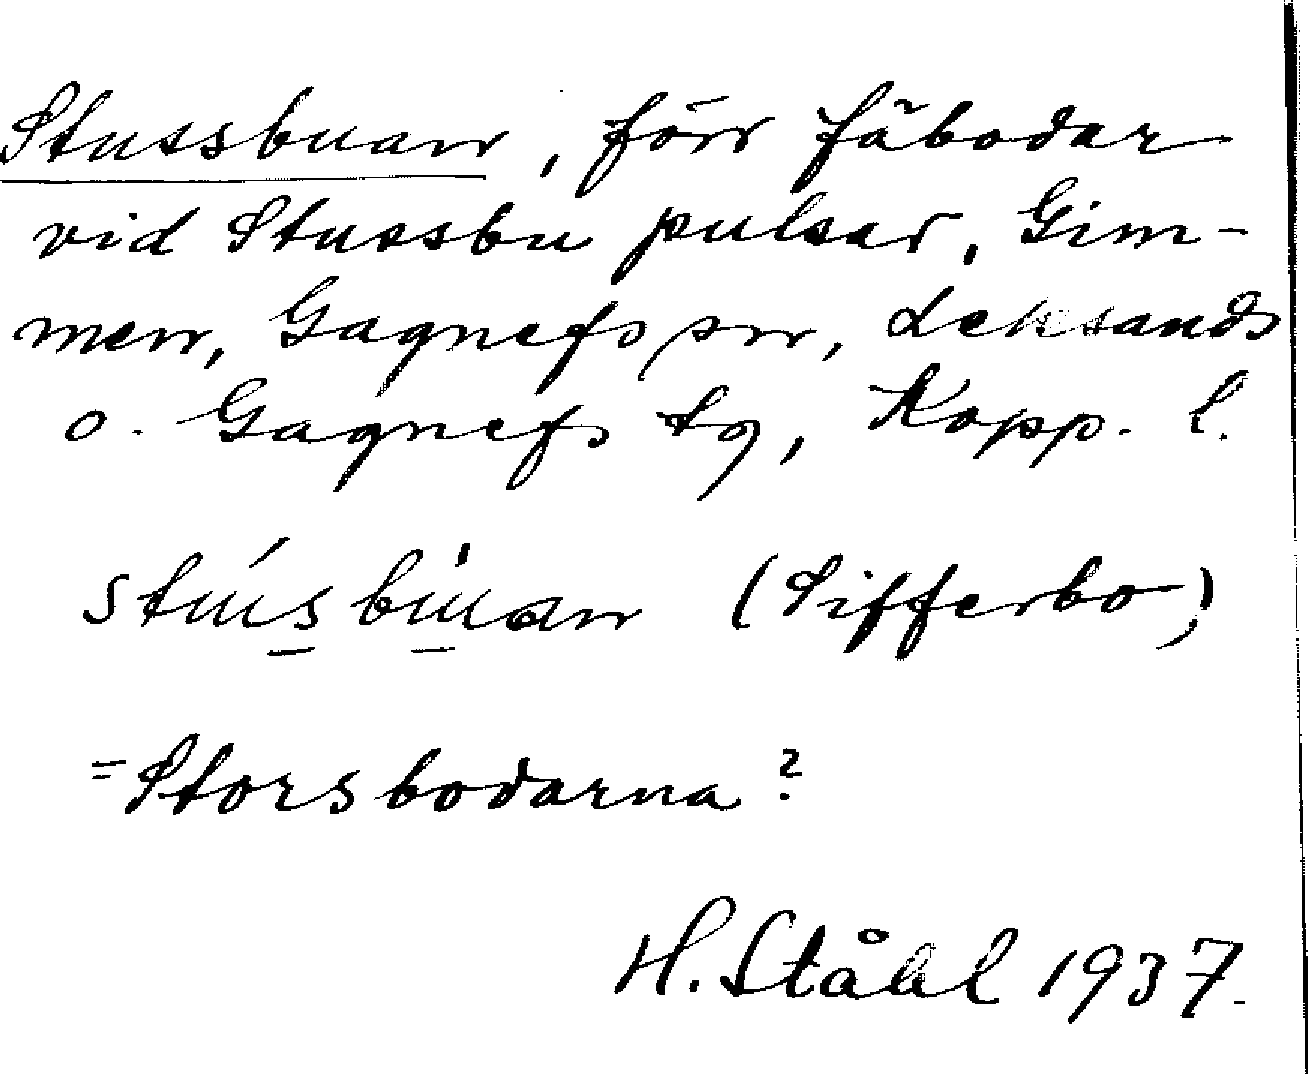 Stussbuan, förr fäbodar
vid Stussbu pulsar, Gim-
men, Gagnefs sn, Leksands
o. Gagnefs tg, Kopp. l.
stúsbu̍an (Sifferbo)
=Storsbodarna?
H. Ståhl 1937.